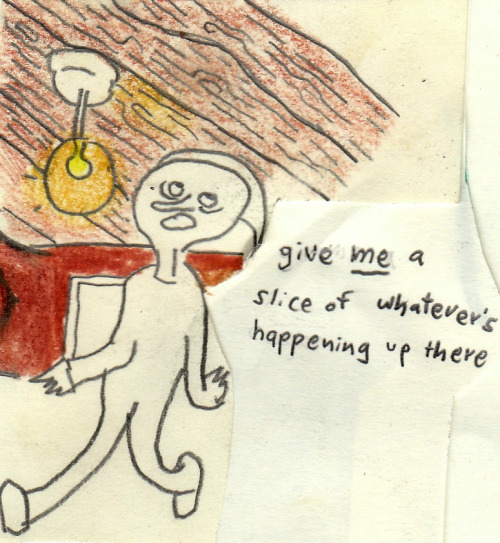 give me a
slice of whatever's
happening up there